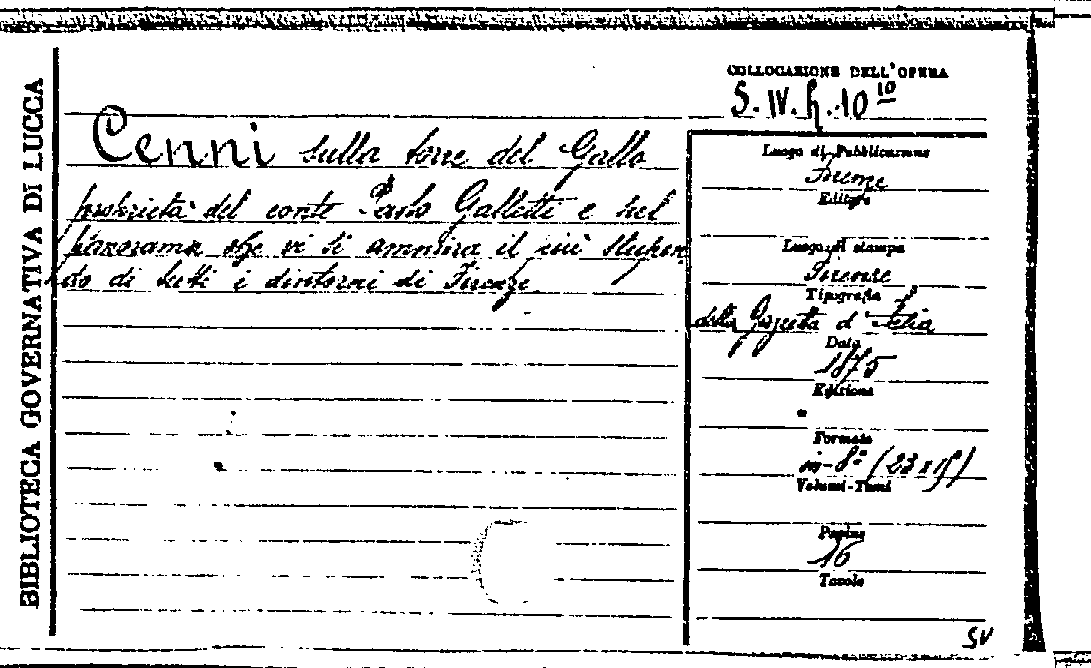 BIBLIOTECA GOVERNATIVA DI LUCCA
COLLOCAZIONE DELL'OPERA
S. IV. h. 10 10
Cenni sulla torre del Gallo
proprietà del conte Paolo Galletti e sul
panorama che vi si ammira il più stupen
do di tutti i dintorni di Firenze
Luogo di Pubblicazione
Firenze
Editore
Luogo di stampa
Firenze
Tipografia
della Gazzetta d'Italia
Data
1875
Edizione
Formato
in-8º (23x15)
Volumi-Tomi
Pagine
16
Tavole
SV